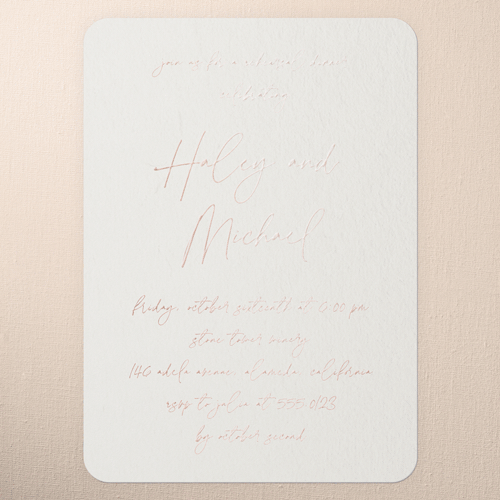 join us for a rehearsal dinner
celebration
Haley and
Michael
friday, october sixteenth at 6:00 pm
stone tower winery
140 adela avenue, alameda, california
rsvp to julia at 555 0123
by october second